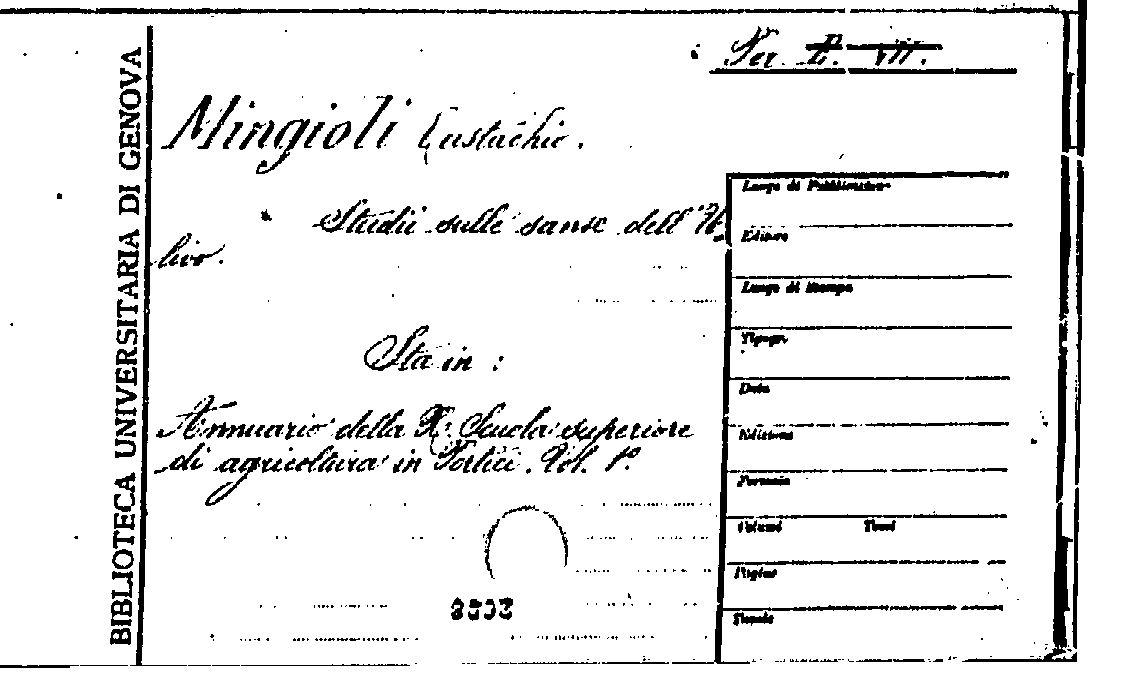 BIBLIOTECA UNIVERSITARIA DI GENOVA
Per. E. VII.
Mingioli Eustachio.
Studii sulle sanse dell'U-
livo.
Sta in :
Annuario della R. Scuola superiore
di agricoltura in Portici. Vol. 1°.
Luogo di Pubblicazione
Editore
Luogo di stampa
Tipogr.
Data
Edizione
Formato
Volumi Tomi
Pagine